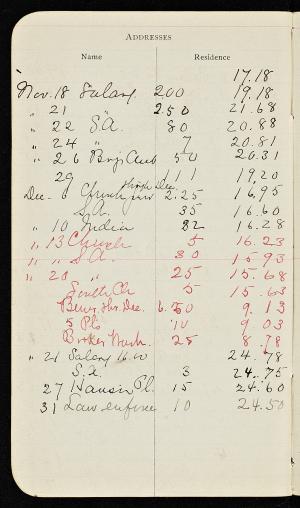 ADDRESSES
Name Residence
17.18
Nov. 18 Salary 200 19.18
" 21 " 2.50 21.68
" 22 S.A. 80 20.88
" 24 " 7 20.81
" 26 Boys Club 50 20.31
29 111 19.20
thro Dec.
Dec- 6 Church 2.25 16.95
S.A. 35 16.60
" 10 India 32 16.28
" 13 Church 5 16.23
" " S.A. 30 15.93
" 20 " 25 15.68
South Ch 5 15.63
Dec. 6.50 9.13
5 Pls 10 9.03
Broken 25 8.78
" 21 Salary 16.00 24.78
S.A. 3 24.75
27 Pl. 15 24.60
31 Law enforce 10 24.50